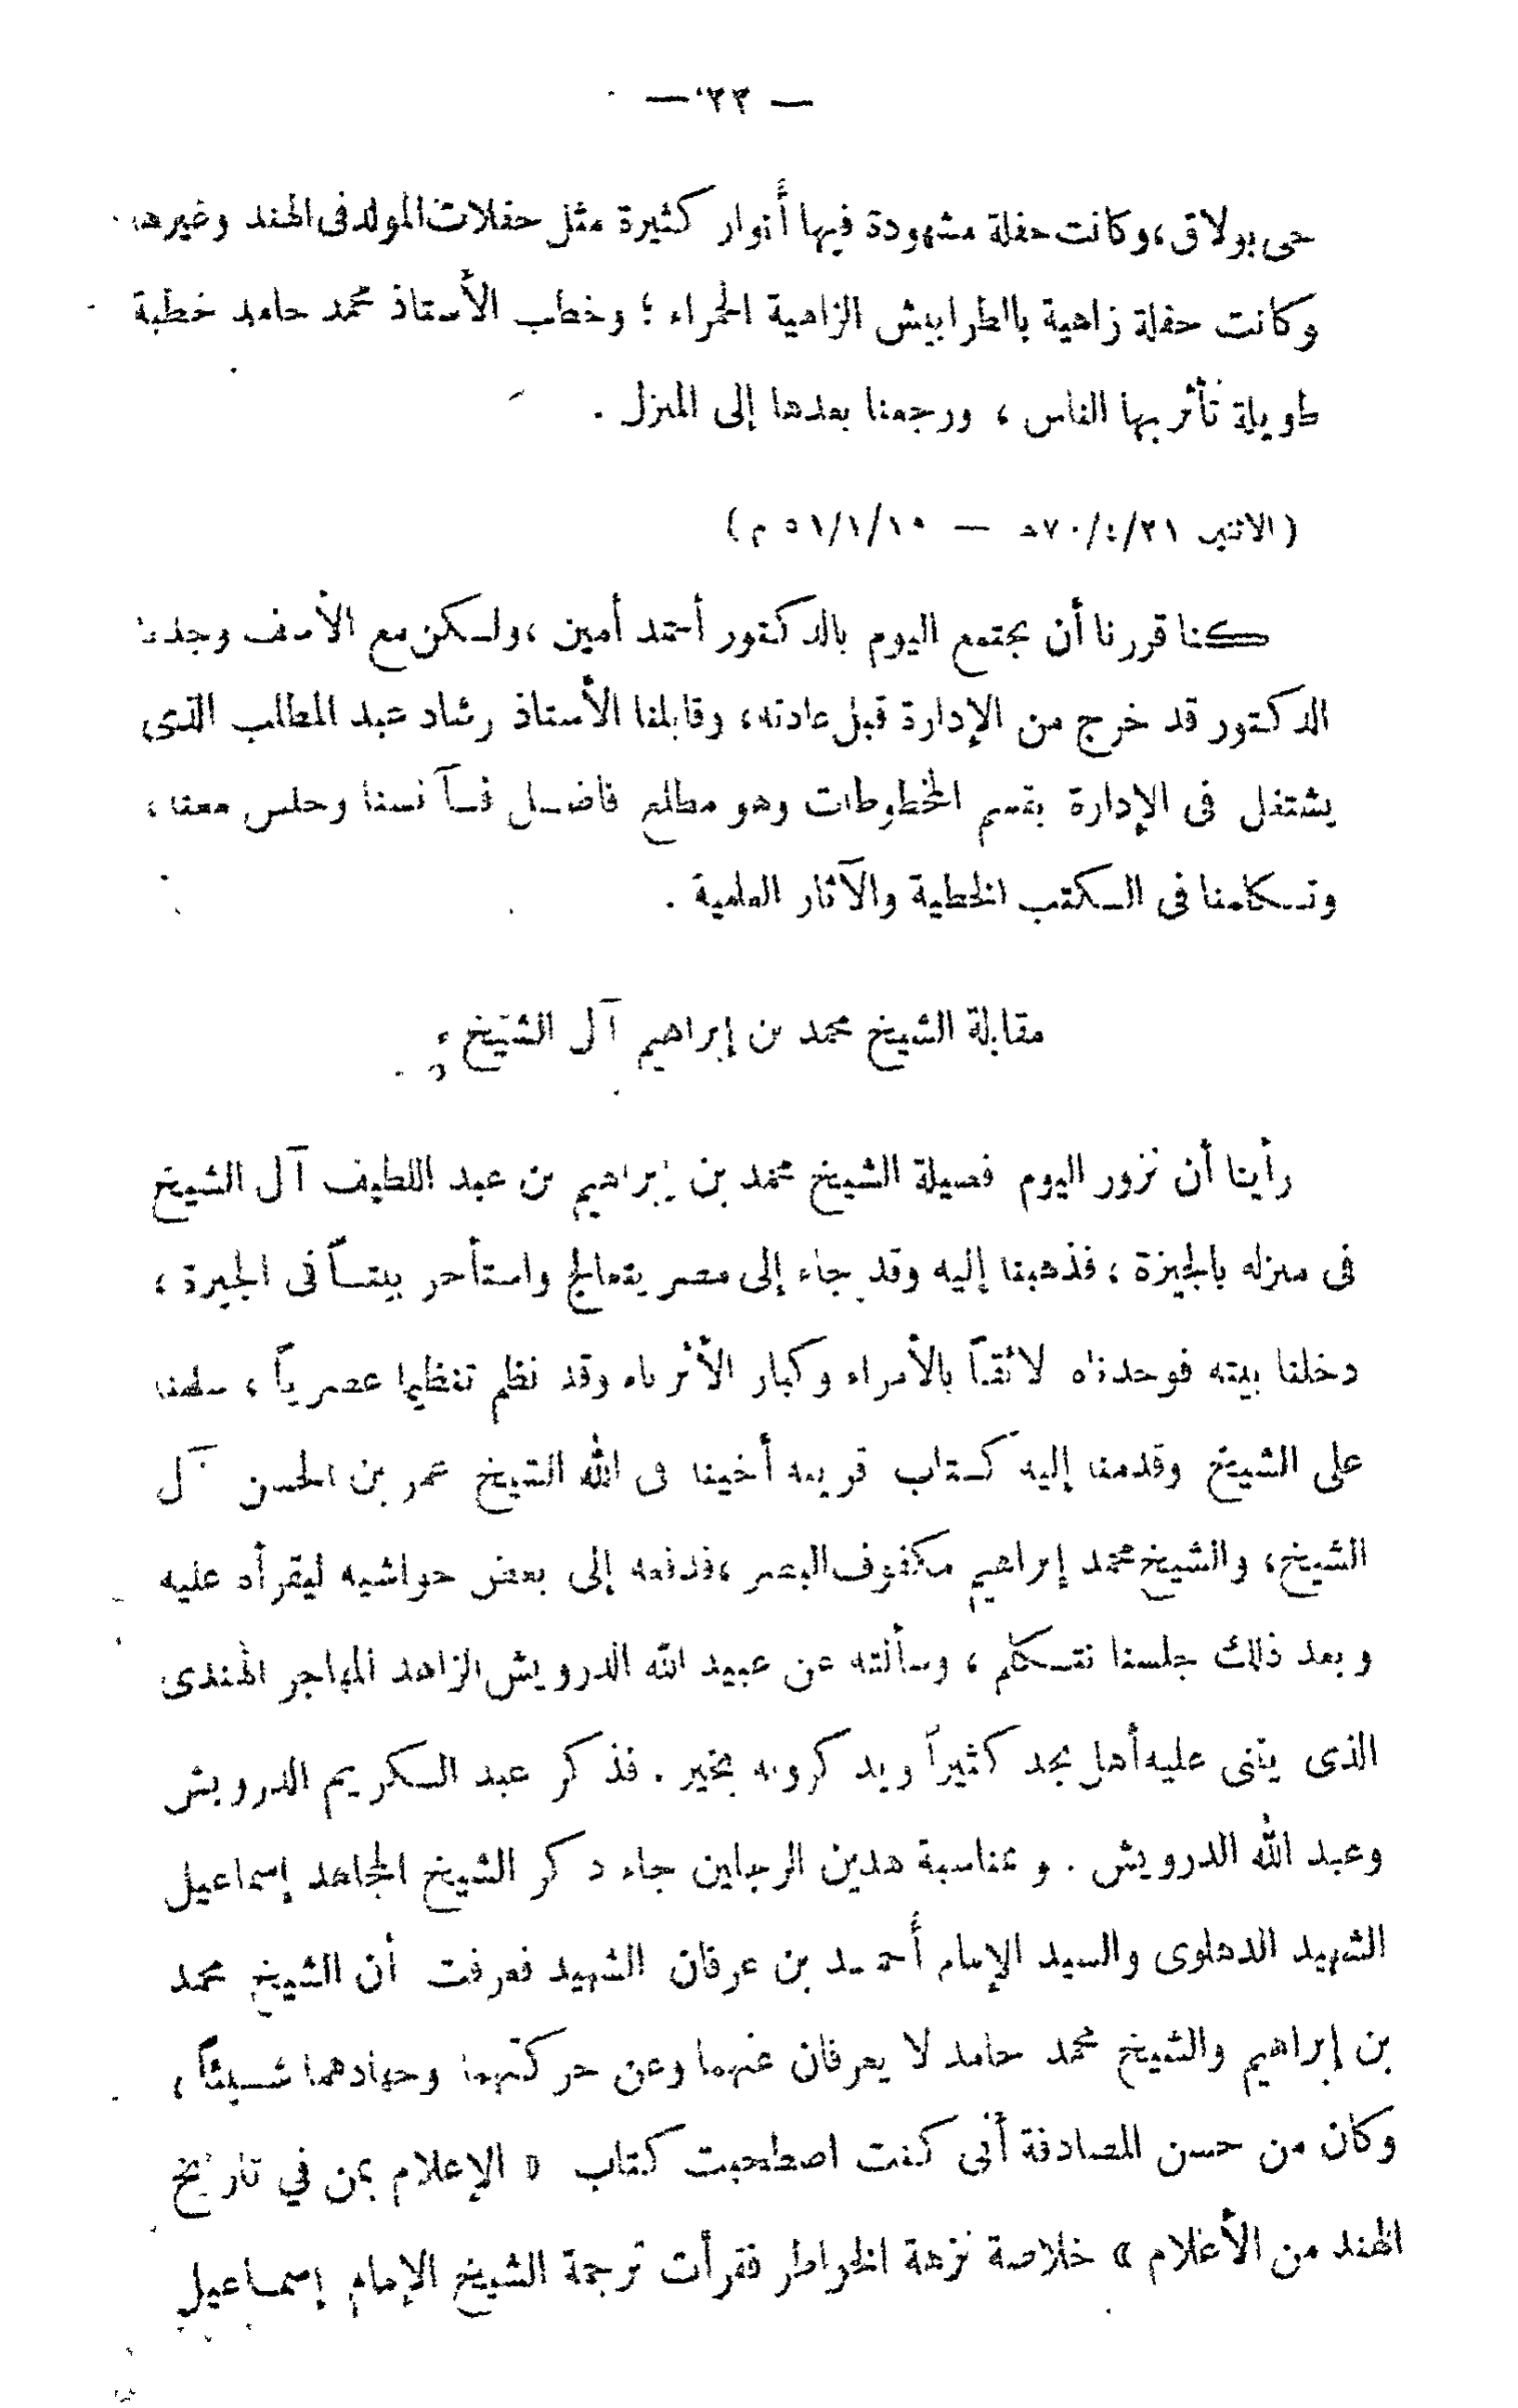 — ٢٣ —
حى بولاق، وكانت حفلة مشهودة فيها أنوار كثيرة مثل حفلات المولد فى الهند وغيرها
وكانت حفلة زاهية بالطرابيش الزاهية الحمراء ؛ وخطب الأستاذ محمد حامد خطبة
طويلة تأثر بها الناس ، ورجعنا بعدها إلى المنزل .
(الاثنين ٧٠/٤/٢١هـ — ٥١/١/١٠ م)
كنا قررنا أن نجتمع اليوم بالدكتور أحمد أمين ، ولكن مع الأسف وجدنا
الدكتور قد خرج من الإدارة قبل عادته، وقابلنا الأستاذ رشاد عبد المطلب الذى
يشتغل فى الإدارة بقسم المخطوطات وهو مطلع فاضل فآنسنا وجلس معنا ،
وتكلمنا فى الكتب الخطية والآثار العلمية .
مقابلة الشيخ محمد بن إبراهيم آل الشيخ :
رأينا أن نزور اليوم فضيلة الشيخ محمد بن إبراهيم بن عبد اللطيف آل الشيخ
فى منزله بالجيزة ، فذهبنا إليه وقد جاء إلى مصر يتعالج واستأجر بيتاً فى الجيزة ،
دخلنا بيته فوجدناه لائقاً بالأمراء وكبار الأثرياء وقد نظم تنظيما عصرياً ، سلمنا
على الشيخ وقدمنا إليه كتاب قريبه أخينا فى الله الشيخ عمر بن الحسن آل
الشيخ، والشيخ محمد إبراهيم مكفوف البصر ، فدفعه إلى بعض حواشيه ليقرأه عليه
وبعد ذلك جلسنا نتكلم ، وسألته عن عبيد الله الدرويش الزاهد المهاجر الهندى
الذى يثنى عليه أهل نجد كثيراً ويذكرونه بخير . فذكر عبد الكريم الدرويش
وعبد الله الدرويش . وبمناسبة هذين الرجلين جاء ذكر الشيخ المجاهد إسماعيل
الشهيد الدهلوى والسيد الإمام أحمد بن عرفان الشهيد فعرفت أن الشيخ محمد
بن إبراهيم والشيخ محمد حامد لا يعرفان عنهما وعن حركتهما وجهادهما شيئاً ،
وكان من حسن المصادفة أنى كنت اصطحبت كتاب « الإعلام بمن في تاريخ
الهند من الأعلام » خلاصة نزهة الخواطر فقرأت ترجمة الشيخ الإمام إسماعيل